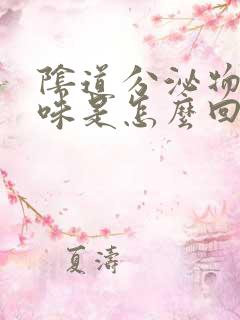 陰道分泌物
味是怎麼回
夏濤